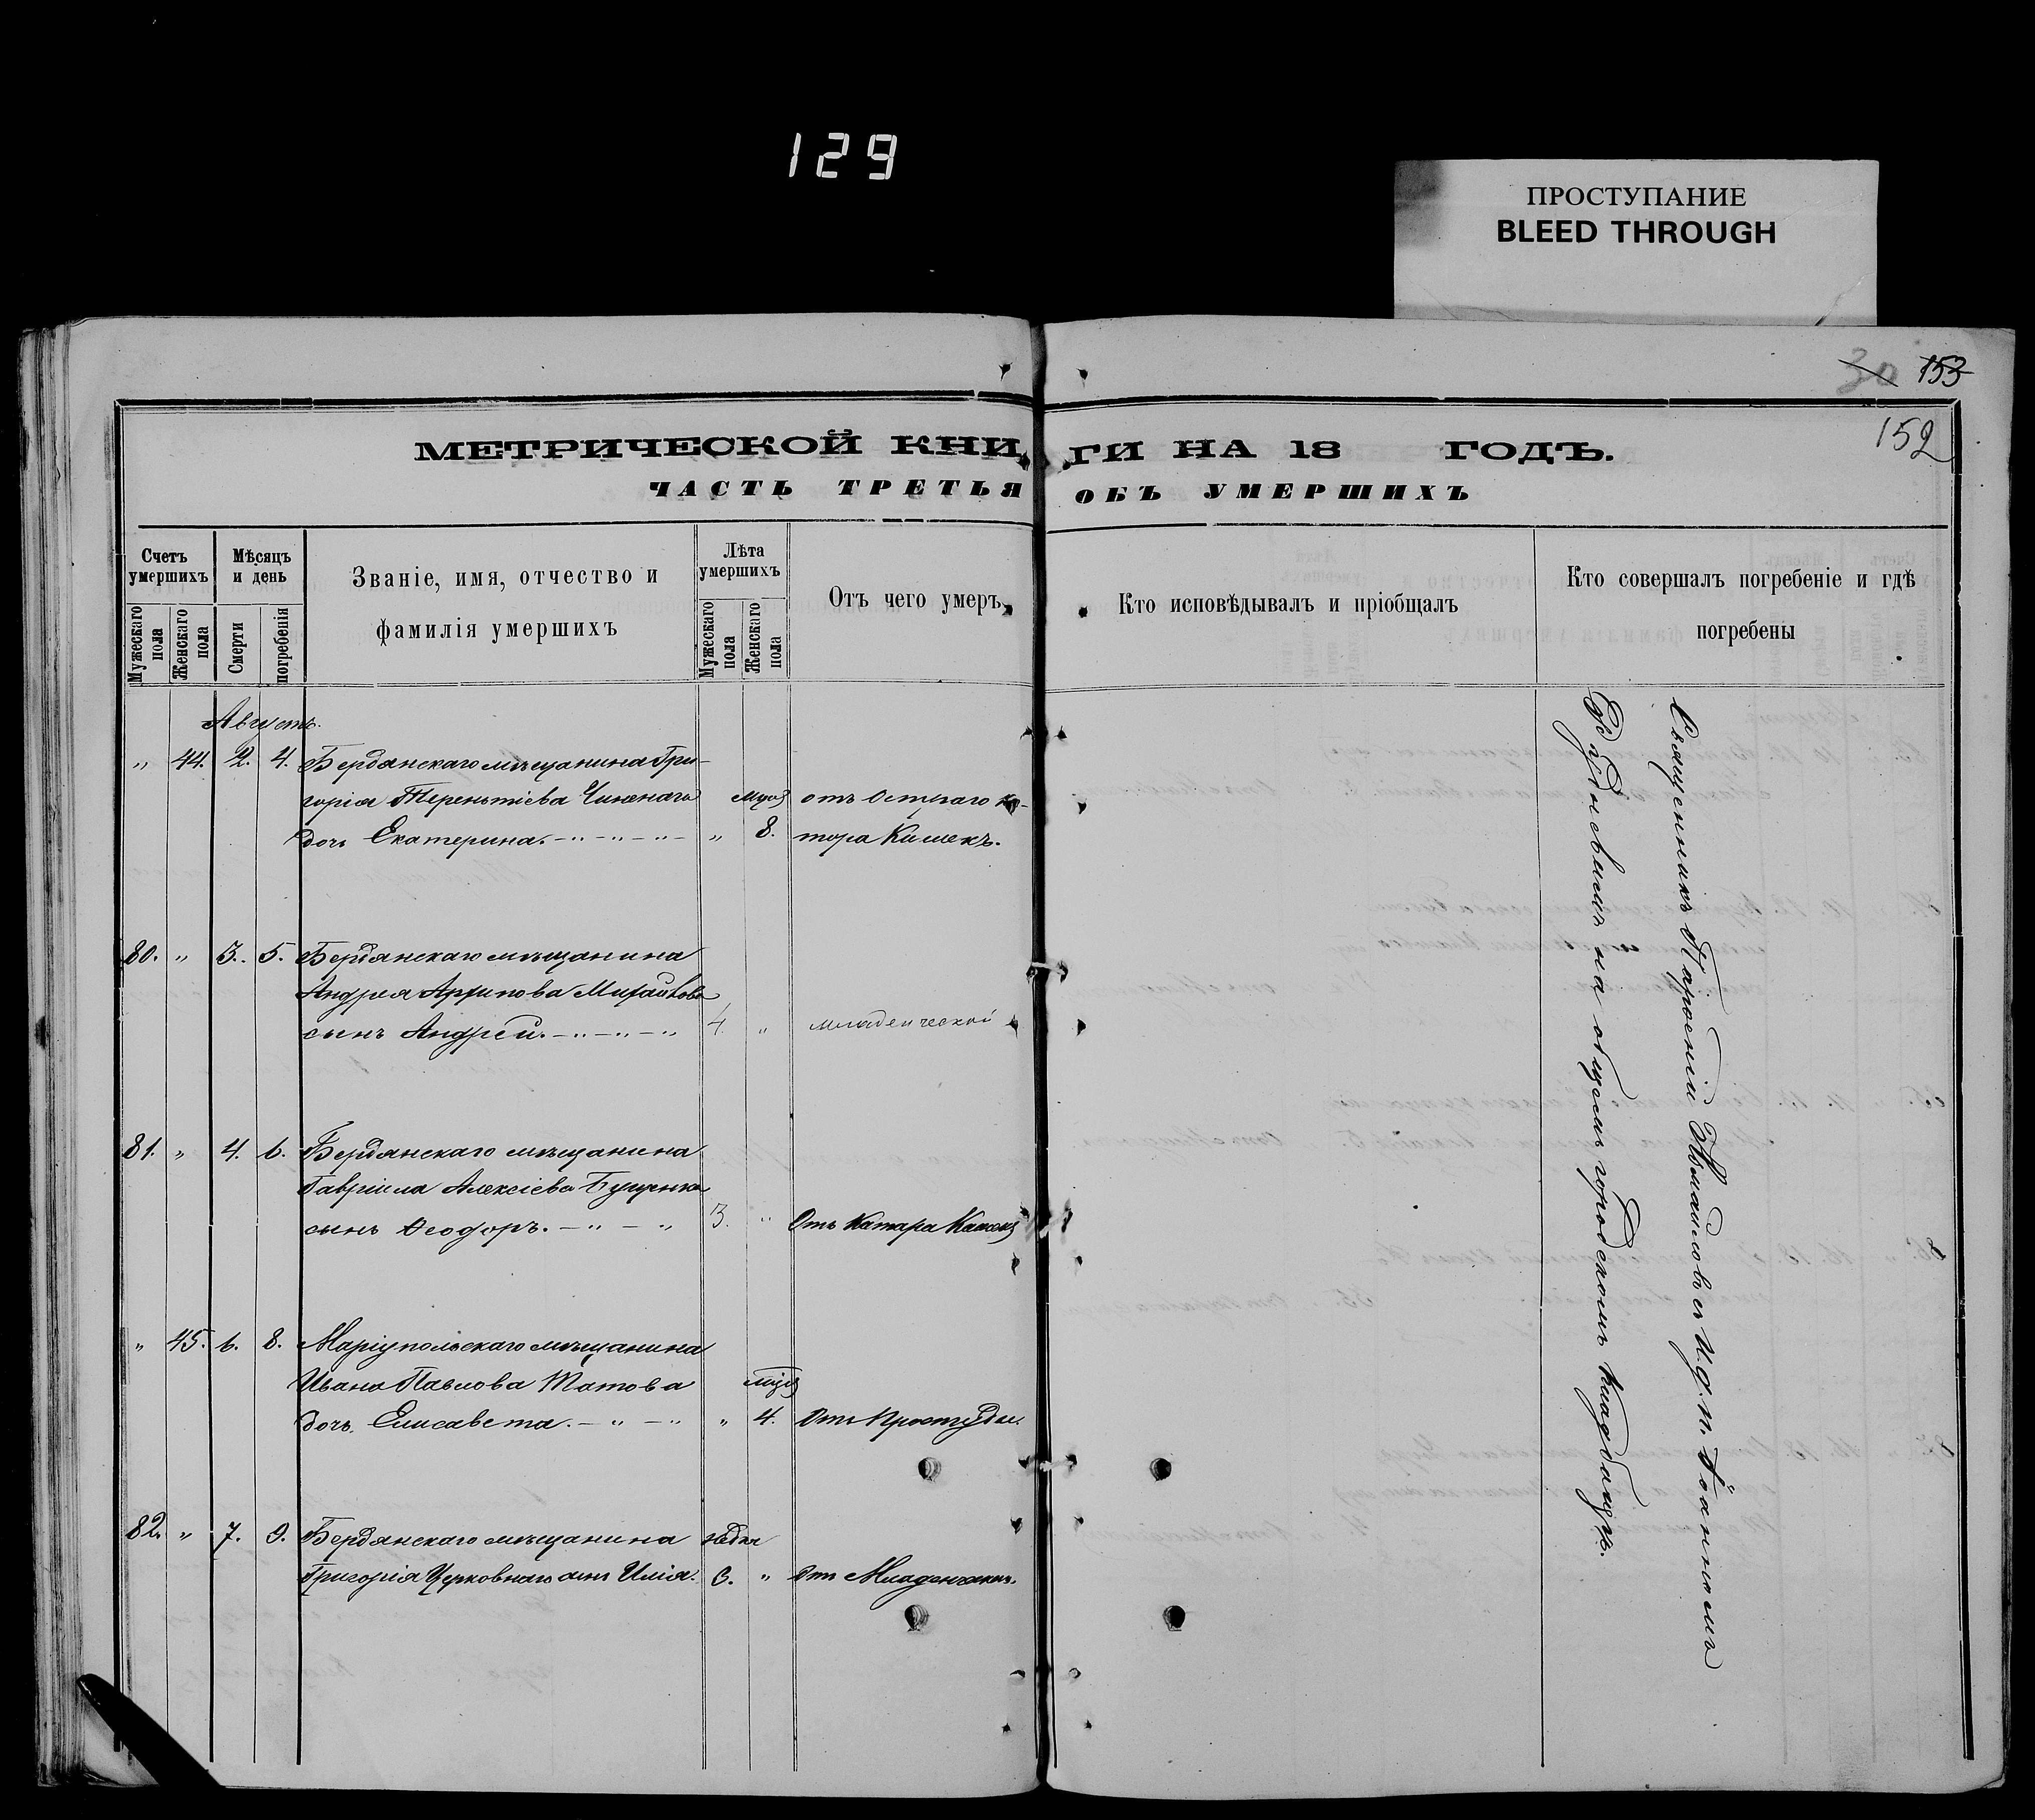 129
ПРОСТУПАНИЕ
BLEED THROUGH
30 153
152
МЕТРИЧЕСКОЙ КНИГИ НА 18 ГОДЪ.
ЧАСТЬ ТРЕТЬЯ ОБЪ УМЕРШИХЪ
Счетъ умершихъ
Мужескаго пола
Женскаго пола
Мѣсяцъ и день
Смерти
погребенія
Званіе, имя, отчество и
фамилія умершихъ
Лѣта умершихъ
Мужескаго пола
Женскаго пола
Отъ чего умеръ
Кто исповѣдывалъ и пріобщалъ
Кто совершалъ погребеніе и гдѣ
погребены
Августъ.
" 44. 2. 4. Бердянскаго мѣщанина Гри-
горія Терентіева отъ Остраго ка-
дочь Екатерина. " 8. тора Кишекъ.
80. " 3. 5. Бердянскаго мѣщанина
Андрея Архипова
сынъ Андрей. 4. " младенческой
81. " 4. 6. Бердянскаго мѣщанина
Гавріила Алексіева
сынъ Ѳеодоръ. 3. " Отъ Катара
" 45. 6. 8. Маріупольскаго мѣщанина
Ивана Павлова Татова
дочь Елисавета. " 4. Отъ Простуды.
82. " 7. 9. Бердянскаго мѣщанина
Григорія Церковнаго сынъ Илія. " Отъ
Священникъ Пароеній съ И. д. п.
на общемъ городскомъ кладбищѣ.